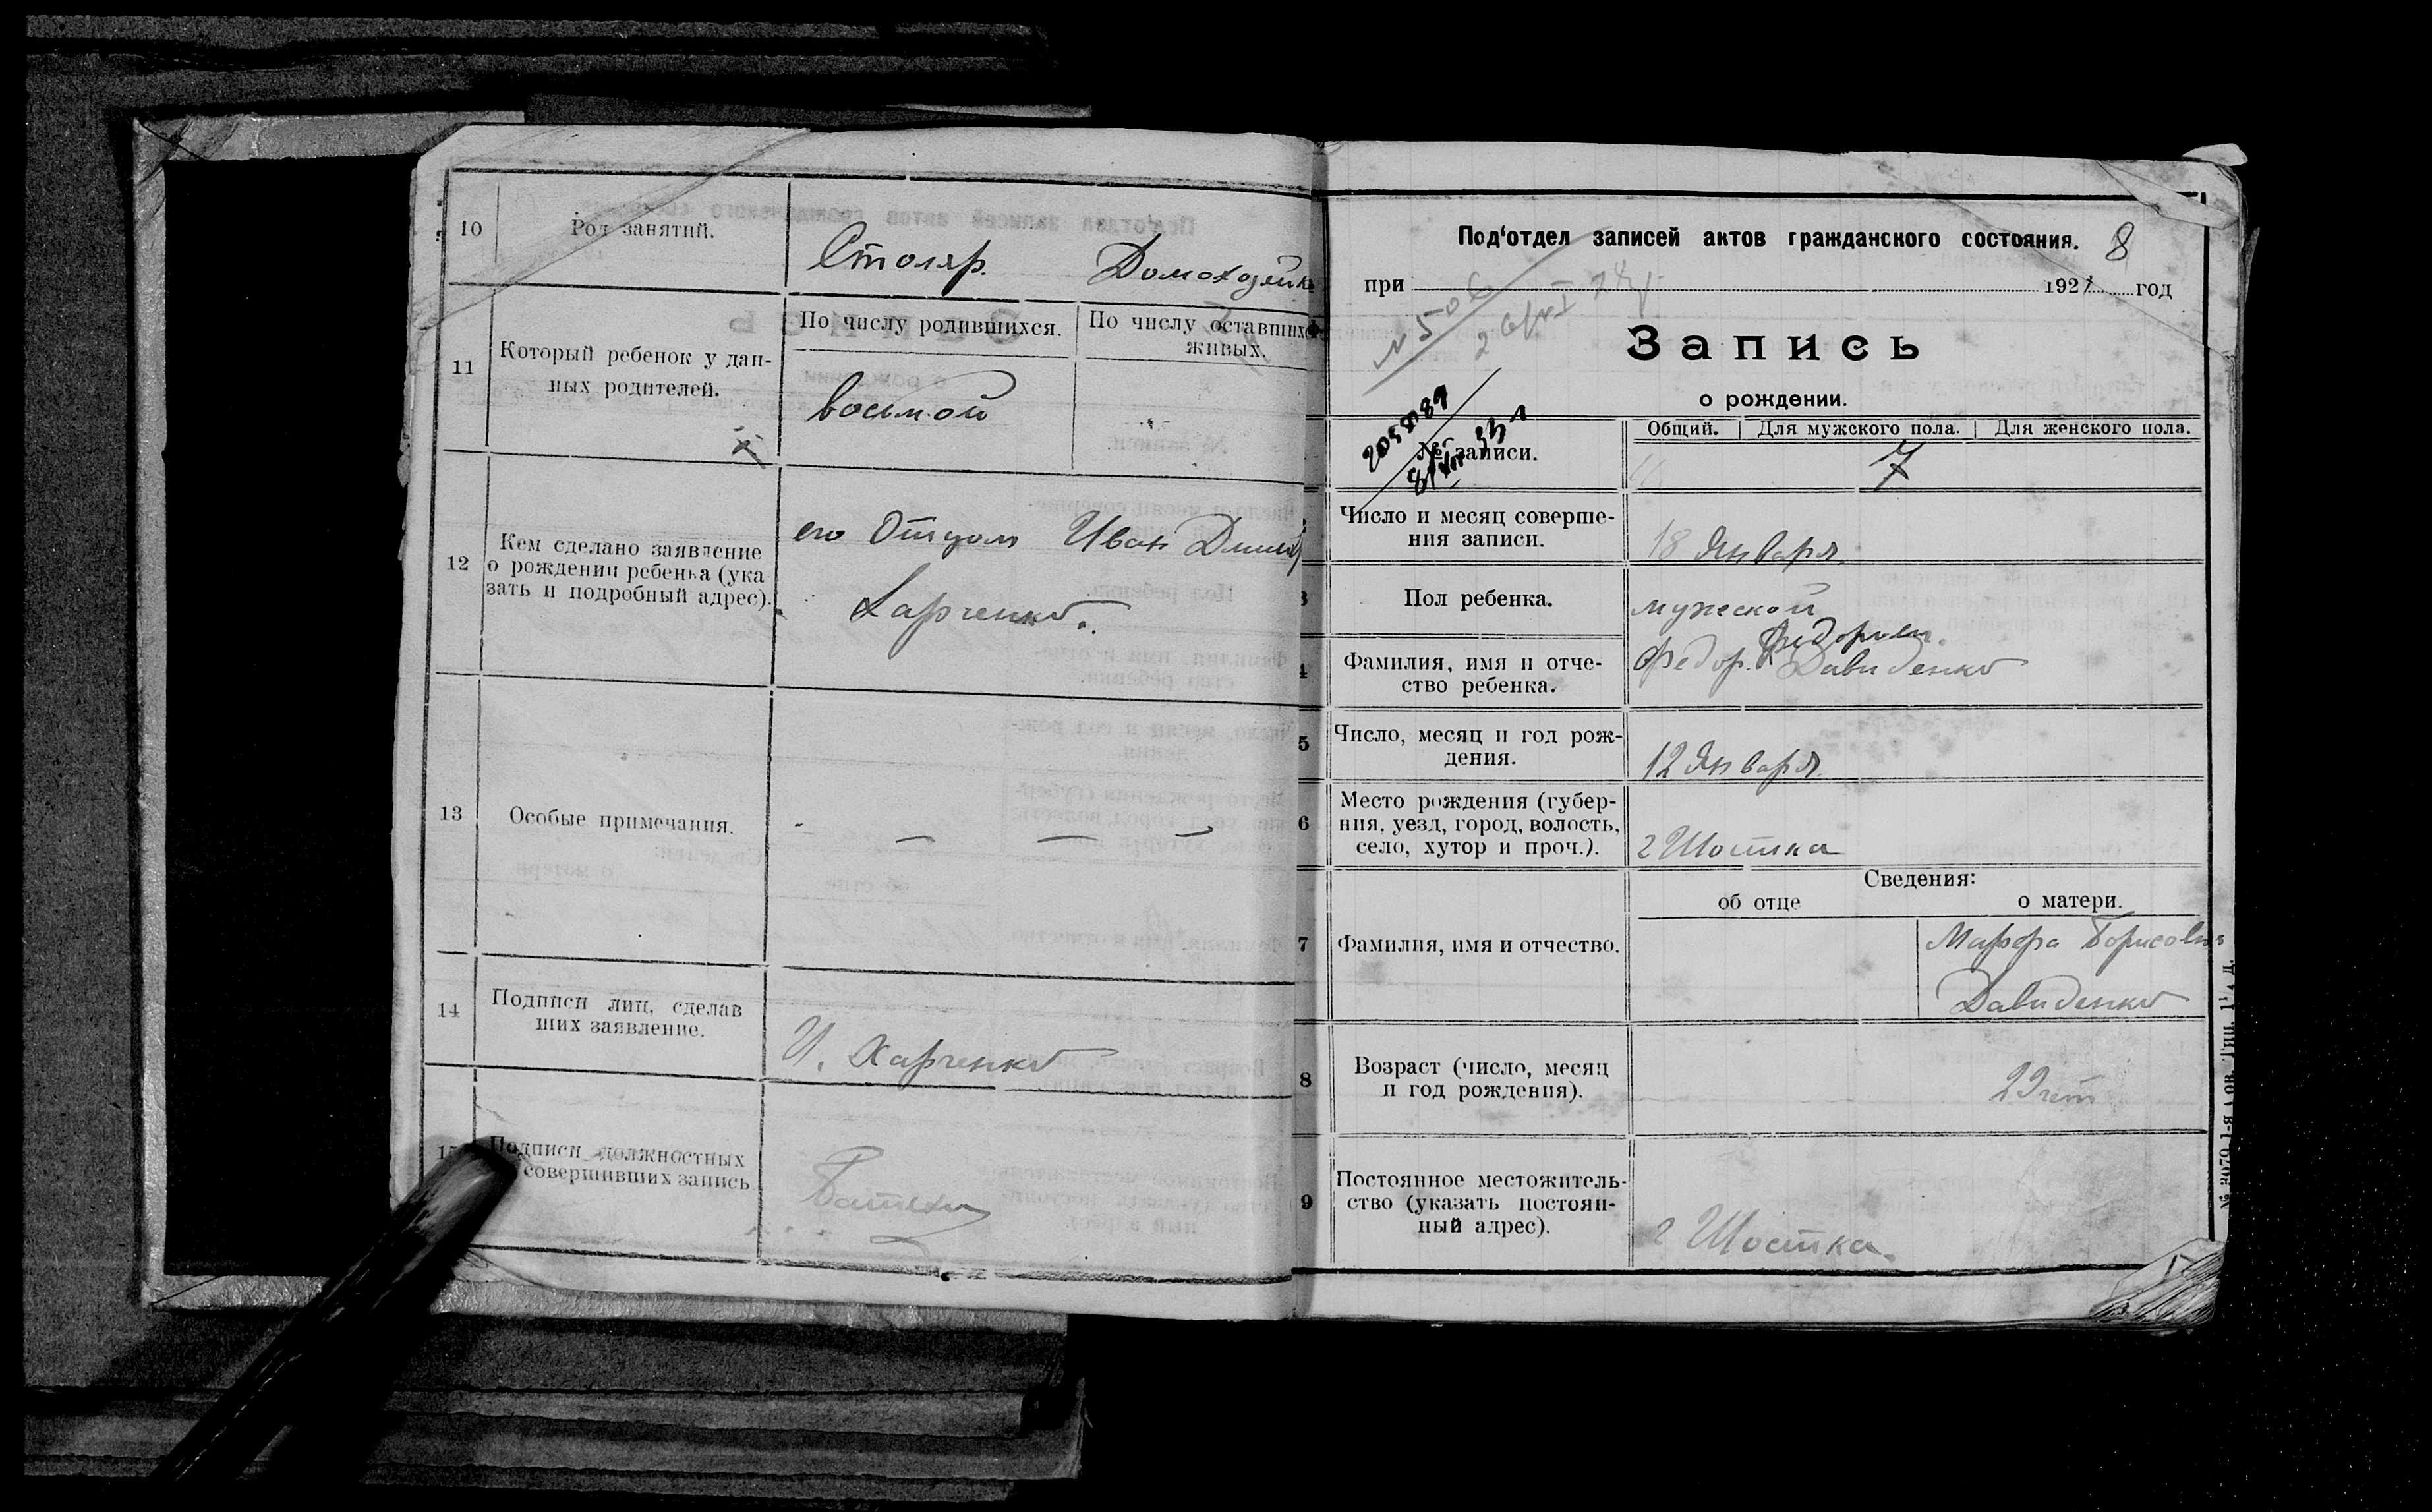 10
Род занятий.
Столяр. Домохозяйка
11
Который ребенок у дан-
ных родителей.
По числу родившихся.
По числу оставшихся
живых.
восьмой
12
Кем сделано заявление
о рождении ребенка (ука
зать и подробный адрес).
его Отцом Иван
Харченко.
13
Особые примечания.
- — — —
14
Подписи лиц, сделав
ших заявление.
И. Харченко
Подписи должностных
совершивших запись
Под'отдел записей актов гражданского состояния.
при
1928 год
№ 506
Запись
о рождении.
№ записи.
Общий.
Для мужского пола.
Для женского пола.
7
Число и месяц соверше-
ния записи.
18 Января
3
Пол ребенка.
мужской
4
Фамилия, имя и отче-
ство ребенка.
Федоров.
Федор. Давиденко
5
Число, месяц и год рож-
дения.
12 Января
6
Место рождения (губер-
ния, уезд, город, волость,
село, хутор и проч.).
г Шостка
Сведения:
об отце
о матери.
7
Фамилия, имя и отчество.
Марфа Борисовна
Давиденко
8
Возраст (число, месяц
и год рождения).
22 лет
9
Постоянное местожитель-
ство (указать постоян-
ный адрес).
г Шостка.